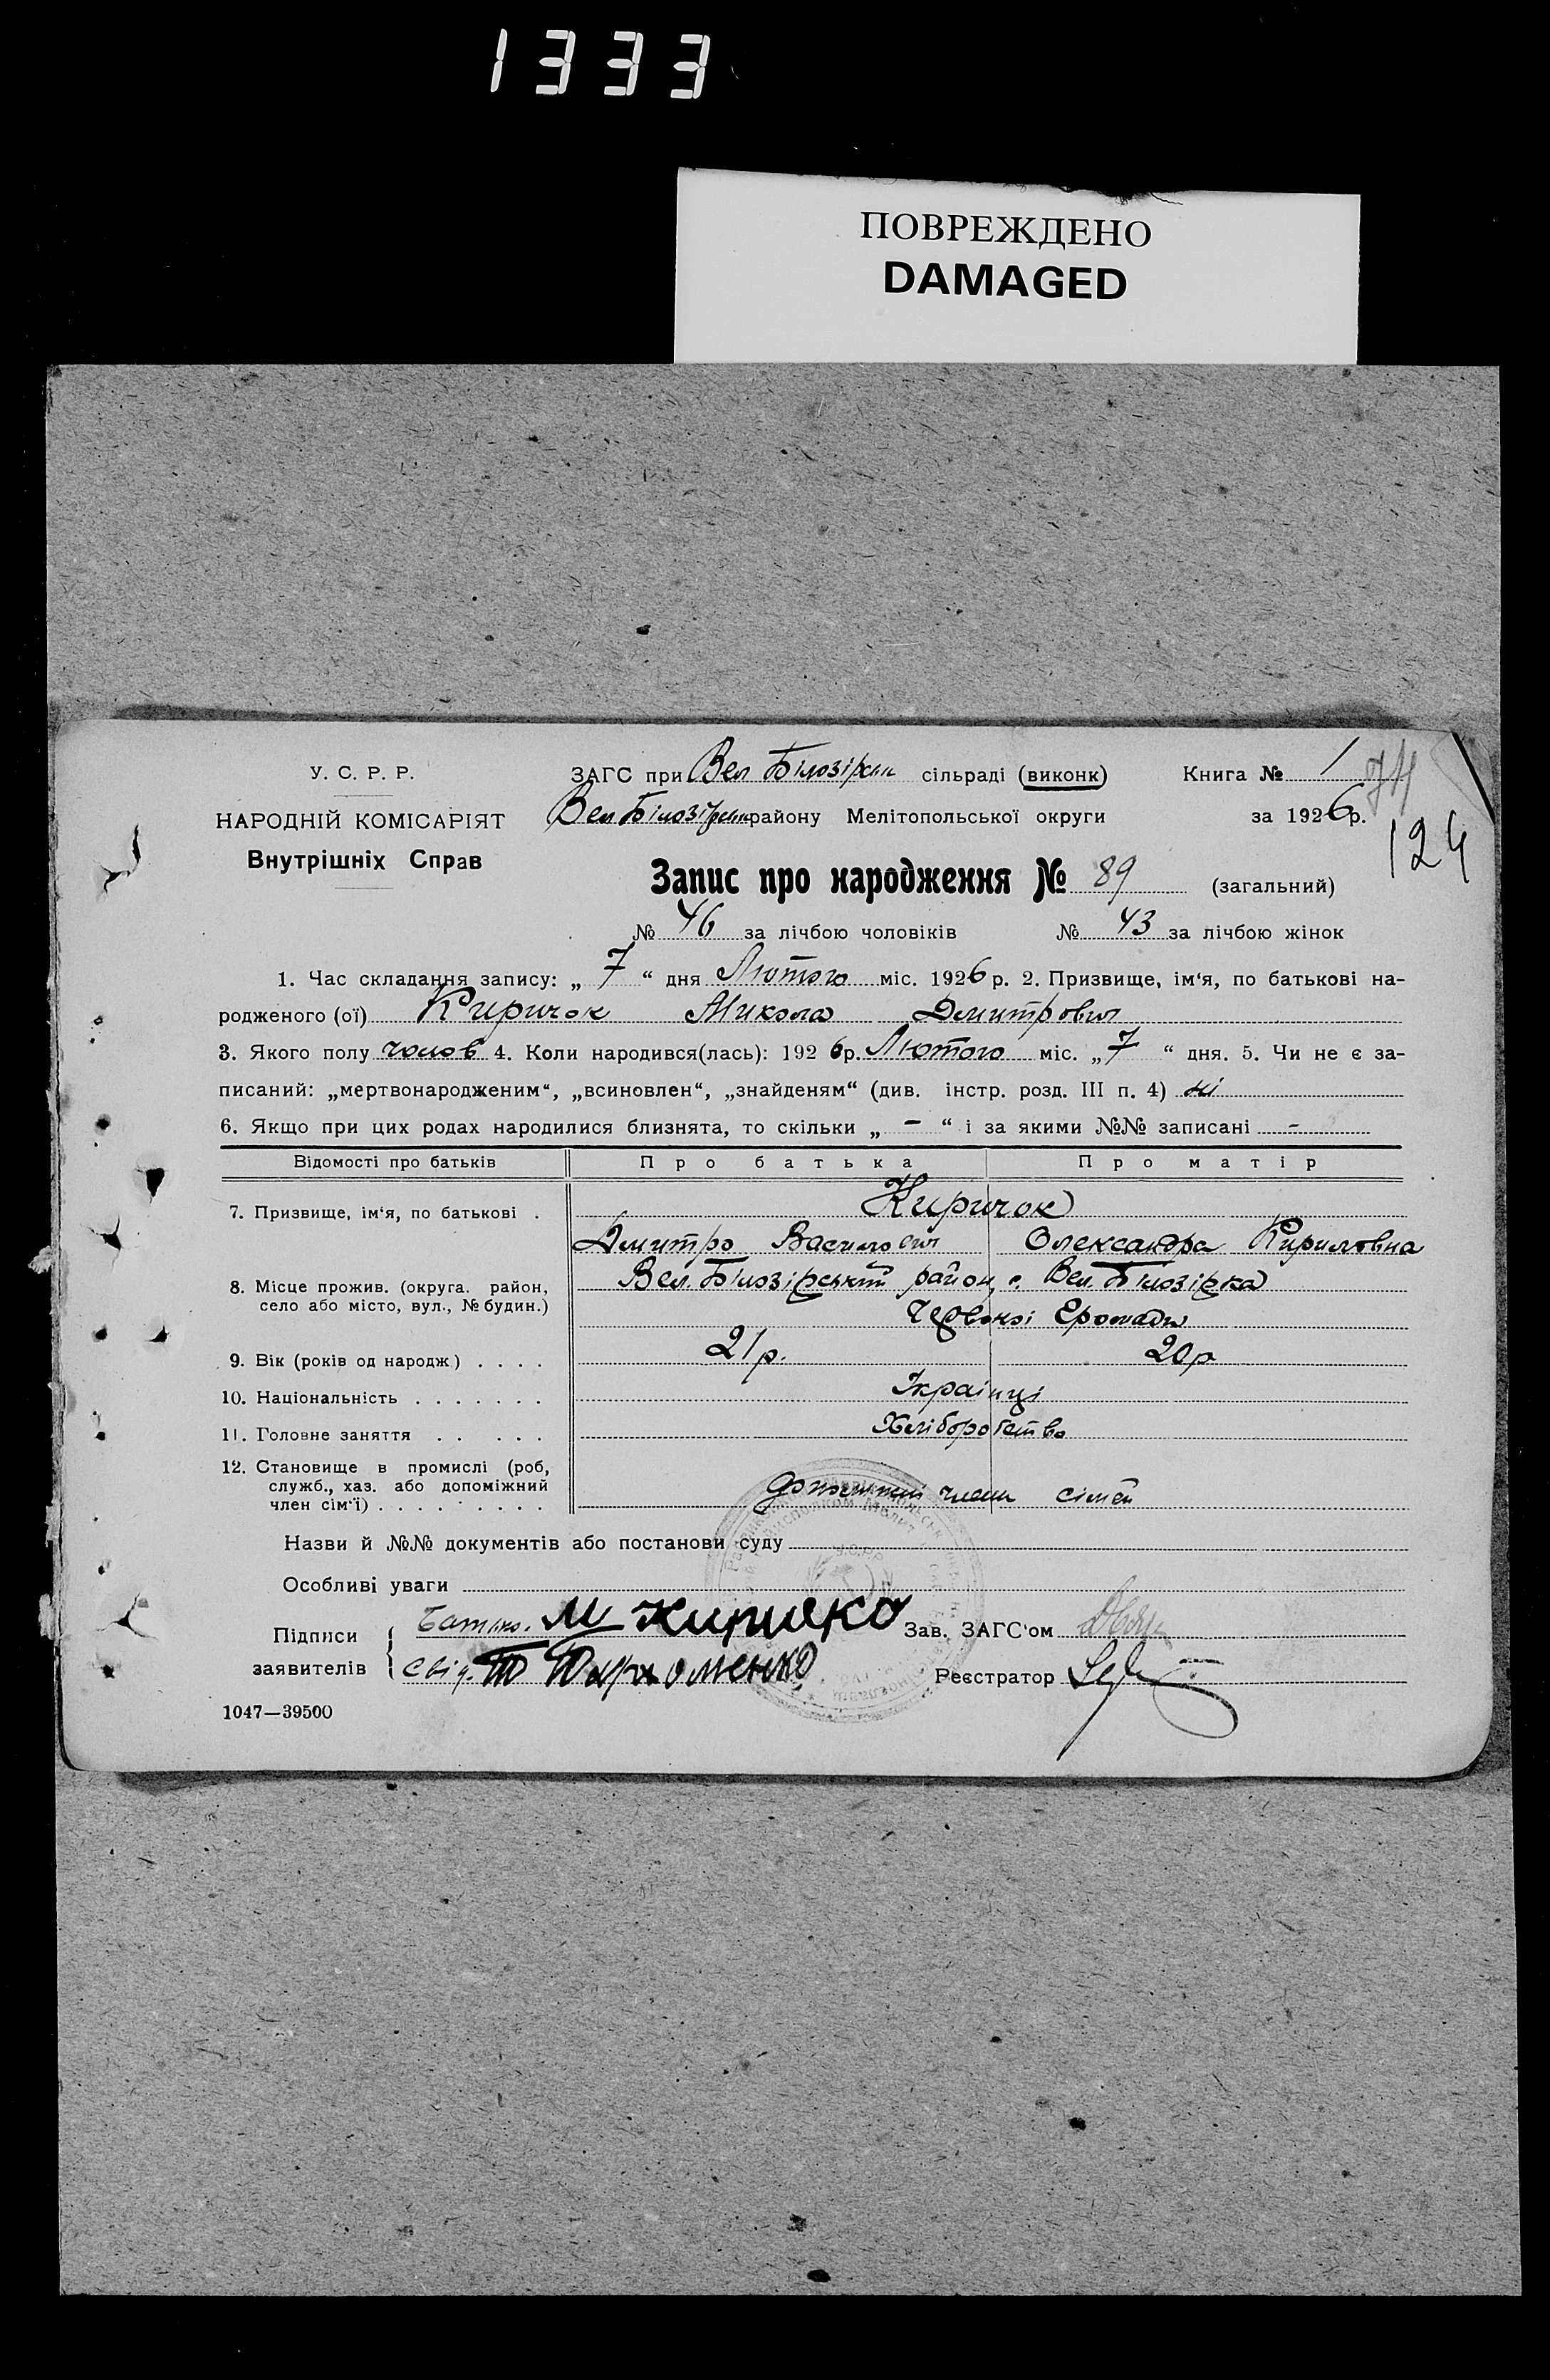 1333
ПОВРЕЖДЕНО
DAMAGED
У. С. Р. Р.
НАРОДНІЙ КОМІСАРІЯТ
Внутрішніх Справ
ЗАГС при Вел Білозірськ сільраді (виконк)
Вел Білозірськ району Мелітопольської округи
Книга № 1
за 1926 р.
124
Запис про народження № 89 (загальний)
№ 46 за лічбою чоловіків № 43 за лічбою жінок
1. Час складання запису: „ 7 “ дня Лютого міс. 1926 р. 2. Призвище, ім‘я, по батькові на-
родженого (ої) Киричок Микола Дмитрович
3. Якого полу чолов 4. Коли народився(лась): 192 6р. Лютого міс. „ 7 “ дня. 5. Чи не є за-
писаний: „мертвонародженим“, „всиновлен“, „знайденям“ (див. інстр. розд. III п. 4) ні
6. Якщо при цих родах народилися близнята, то скільки „ – “ і за якими №№ записані –
Відомості про батьків Про батька Про матір
7. Призвище, ім‘я, по батькові . Киричок
Дмитро Василович Олександра Кириловна
8. Місце прожив. (округа. район, село або місто, вул., № будин.) Вел. Білозірський район, с. Вел. Білозірка
Червоної Громади
9. Вік (років од народж) . . . . 21 р. 20 р
10. Національність . . . . . . . Українці
11. Головне заняття . . . . . Хліборобство
12. Становище в промислі (роб, служб., хаз. або допоміжний член сім‘ї) . . . . . . . . . члени сімей
Назви й №№ документів або постанови суду
Особливі уваги
Підписи заявителів
Батько.
Свід. Т Пархоменко
Зав. ЗАГС‘ом
Реєстратор
1047—39500